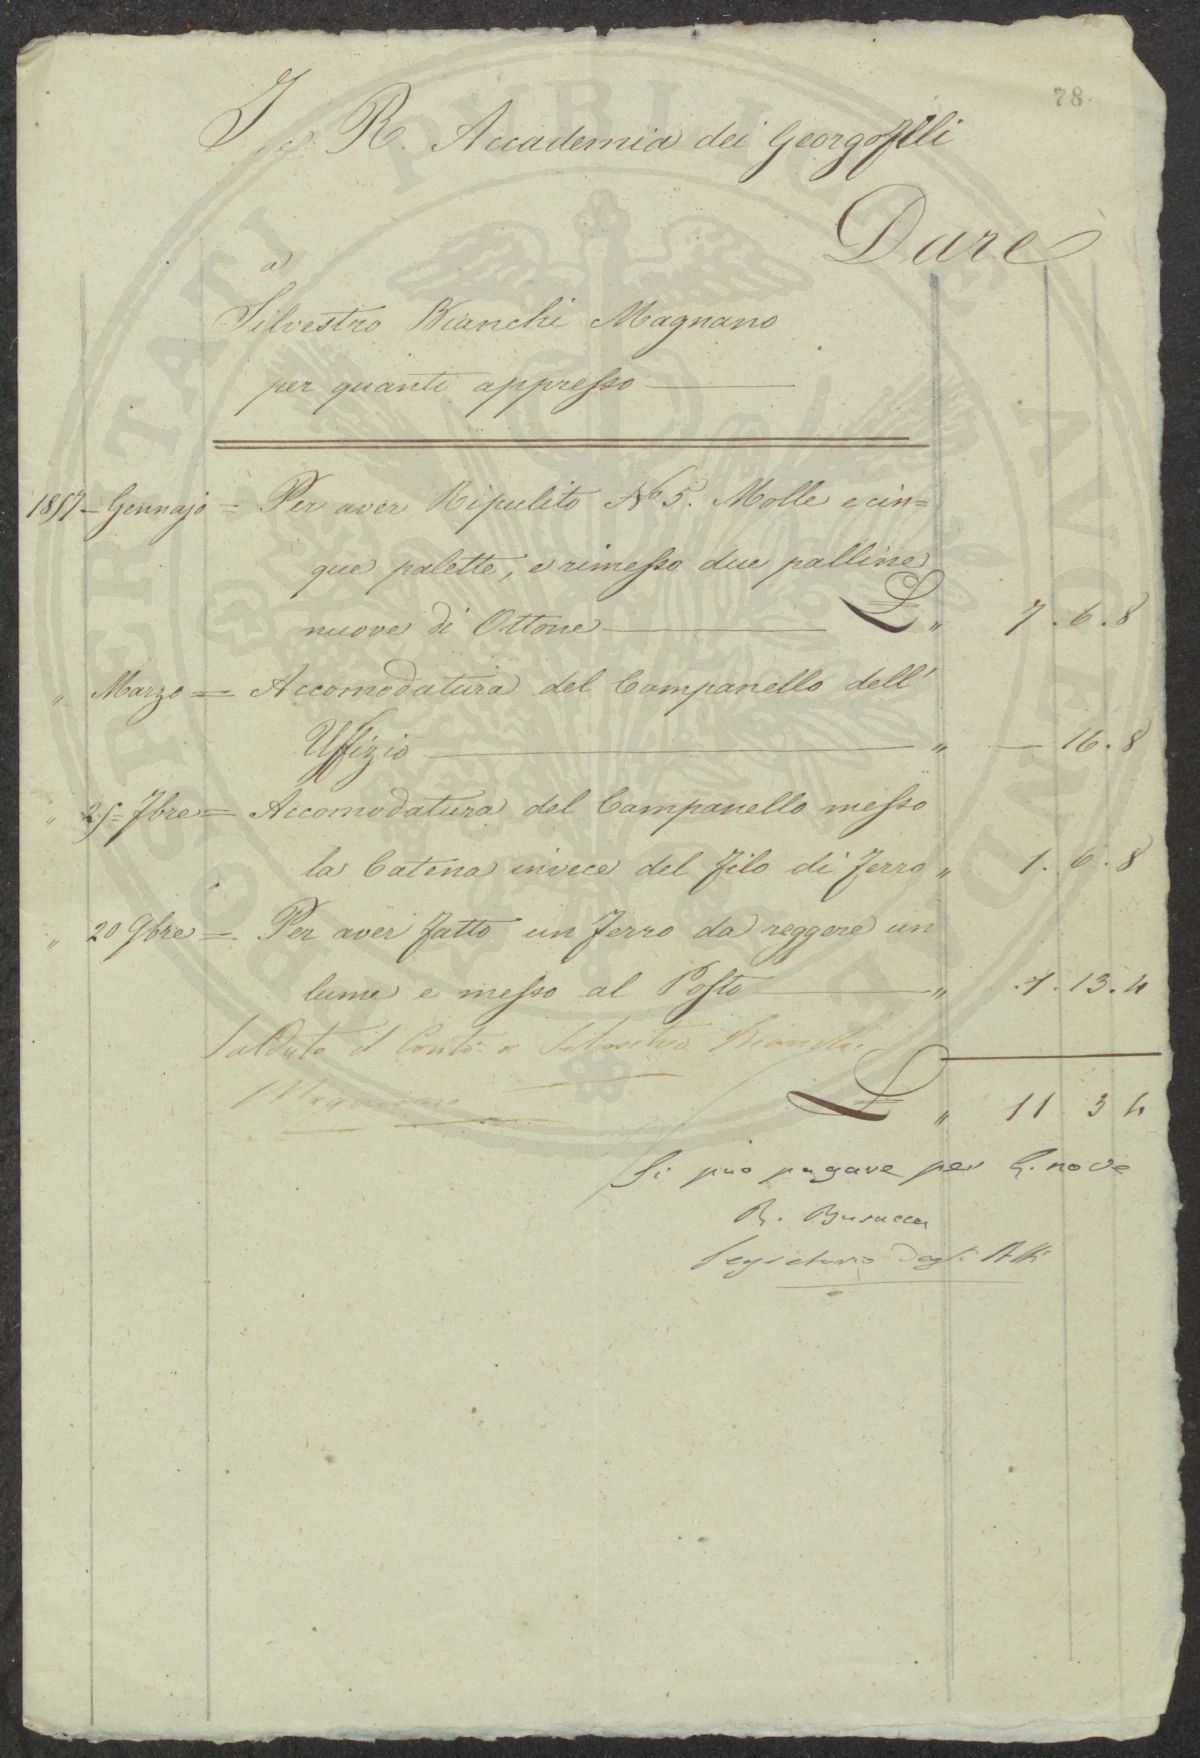 78.
I. e R. Accademia dei Georgofili
Dare
a
Silvestro Bianchi Magnano
per quanto appresso
1857 = Gennajo = Per aver Ripulito No 5. Molle e cin=
que palette, e rimesso due palline
nuove di Ottone £ " 7. 6. 8
" Marzo = Accomodatura del Campanello dell'
Uffizio " — 16. 8
" 25= 7bre = Accomodatura del Campanello messo
la Catena invece del filo di ferro " 1. 6. 8
" 20 9bre = Per aver fatto un ferro da reggere un
lume e messo al Posto " 1. 13. 4
Saldato il Conto a Silvestro Bianchi
Magnano
£ " 11 3 4
Si può pagare per £. nove
R. Busacca
Segretario degli Atti
PROSPERITATI PUBLICAE AUGENDAE